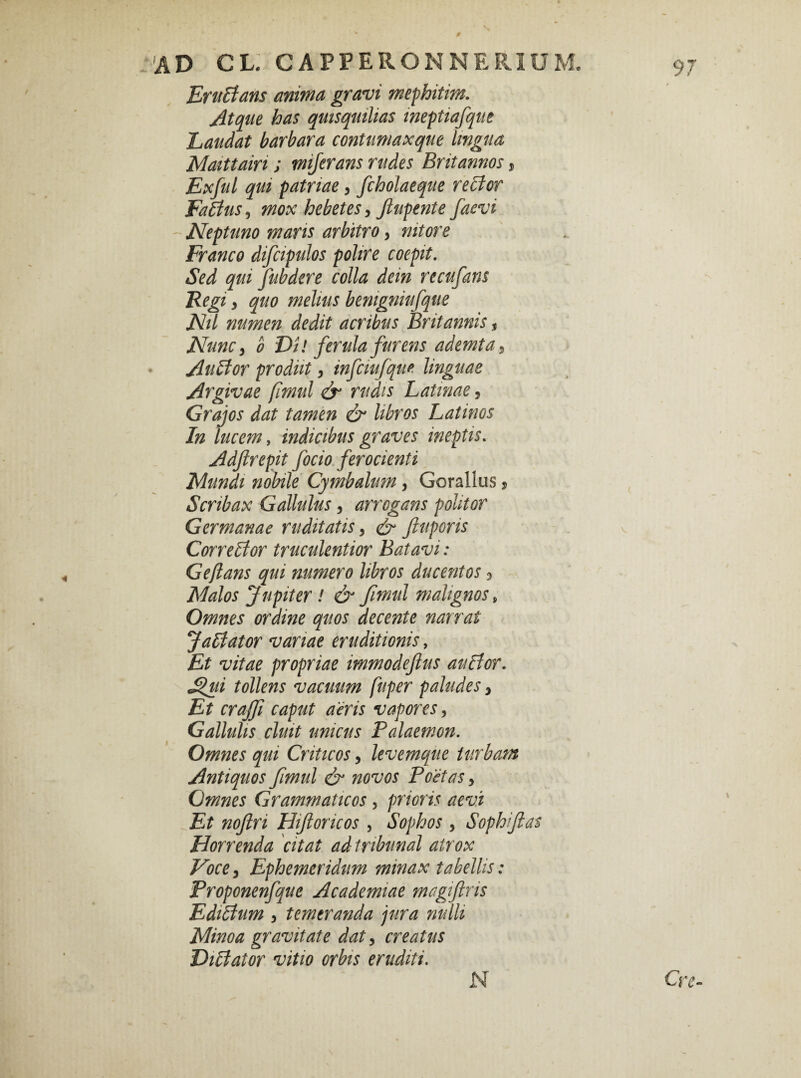 AD CL. CAPPERONNERIUM. 97
Eructans anima gravi mephitim.
Atque has quisquilias ineptiaſque
Laudat barbara contumaxque lingua
Maittairi ; miſerans rudes Britannos,
Exſul qui patriae, ſcholaeque rector
Factus, mox hebetes, ſtupente ſaevi
Neptuno maris arbitro, nitore
Franco diſcipulos polire coepit.
Sed qui ſubdere colla dein recuſans
Regi, quo melius benigniuſque
Nil numen dedit acribus Britannis,
Nunc, ò Dî! ferula furens ademta,
Auctor prodiit, inſciuſque linguae
Argivae ſimul & rudis Latinae,
Grajos dat tamen & libros Latinos
In lucem, indicibus graves ineptis.
Adſtrepit ſocio ferocienti
Mundi nobile Cymbalum, Gorallus,
Scribax Gallulus, arrogans politor
Germanae ruditatis, & ſtuporis
Corrector truculentior Batavi:
Geſtans qui numero libros ducentos,
Malos Jupiter ! & ſimul malignos,
Omnes ordine quos decente narrat
Jactator variae eruditionis,
Et vitae propriae immodeſtus auctor.
Qui tollens vacuum ſuper paludes,
Et craſſi caput aëris vapores,
Gallulis cluit unicus Palaemon.
Omnes qui Criticos, levemque turbam
Antiquos ſimul & novos Poëtas,
Omnes Grammaticos, prioris aevi
Et noſtri Hiſtoricos, Sophos, Sophiſtas
Horrenda citat ad tribunal atrox
Voce, Ephemeridum minax tabellis:
Proponenſque Academiae magiſtris
Edictum, temeranda jura nulli
Minoa gravitate dat, creatus
Dictator vitio orbis eruditi.
N Cre-